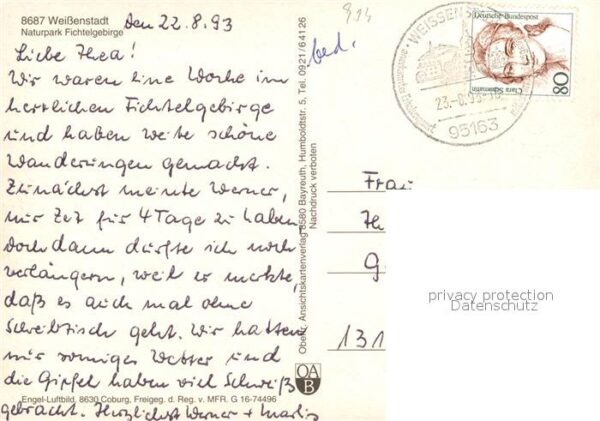 8687 Weißenstadt
Naturpark Fichtelgebirge
den 22.8.93
Liebe Thea!
Wir waren eine Woche im
herrlichen Fichtelgebirge
und haben weite schöne
Wanderungen gemacht.
Zunächst meinte Werner,
nur Zeit für 4 Tage zu haben,
doch dann durfte ich noch
verlängern, weil er merkte,
daß es auch mal ohne
Schreibtisch geht. Wir hatten
nur sonniges Wetter und
die Gipfel haben viel Schweiß
gebracht. Herzlichst Werner + Marlis
Engel-Luftbild, 8630 Coburg, Freigeg. d. Reg. v. MFR. G 16-74496
Oberfr. Ansichtskartenverlag 8580 Bayreuth, Humboldtstr. 5, Tel. 0921/64126
Nachdruck verboten
OA
B
bed.
WEISSENS
23.-8.93-16
95163
Deutsche Bundespost
Clara Schumann
80
Frau
Th
G
131
privacy protection
Datenschutz